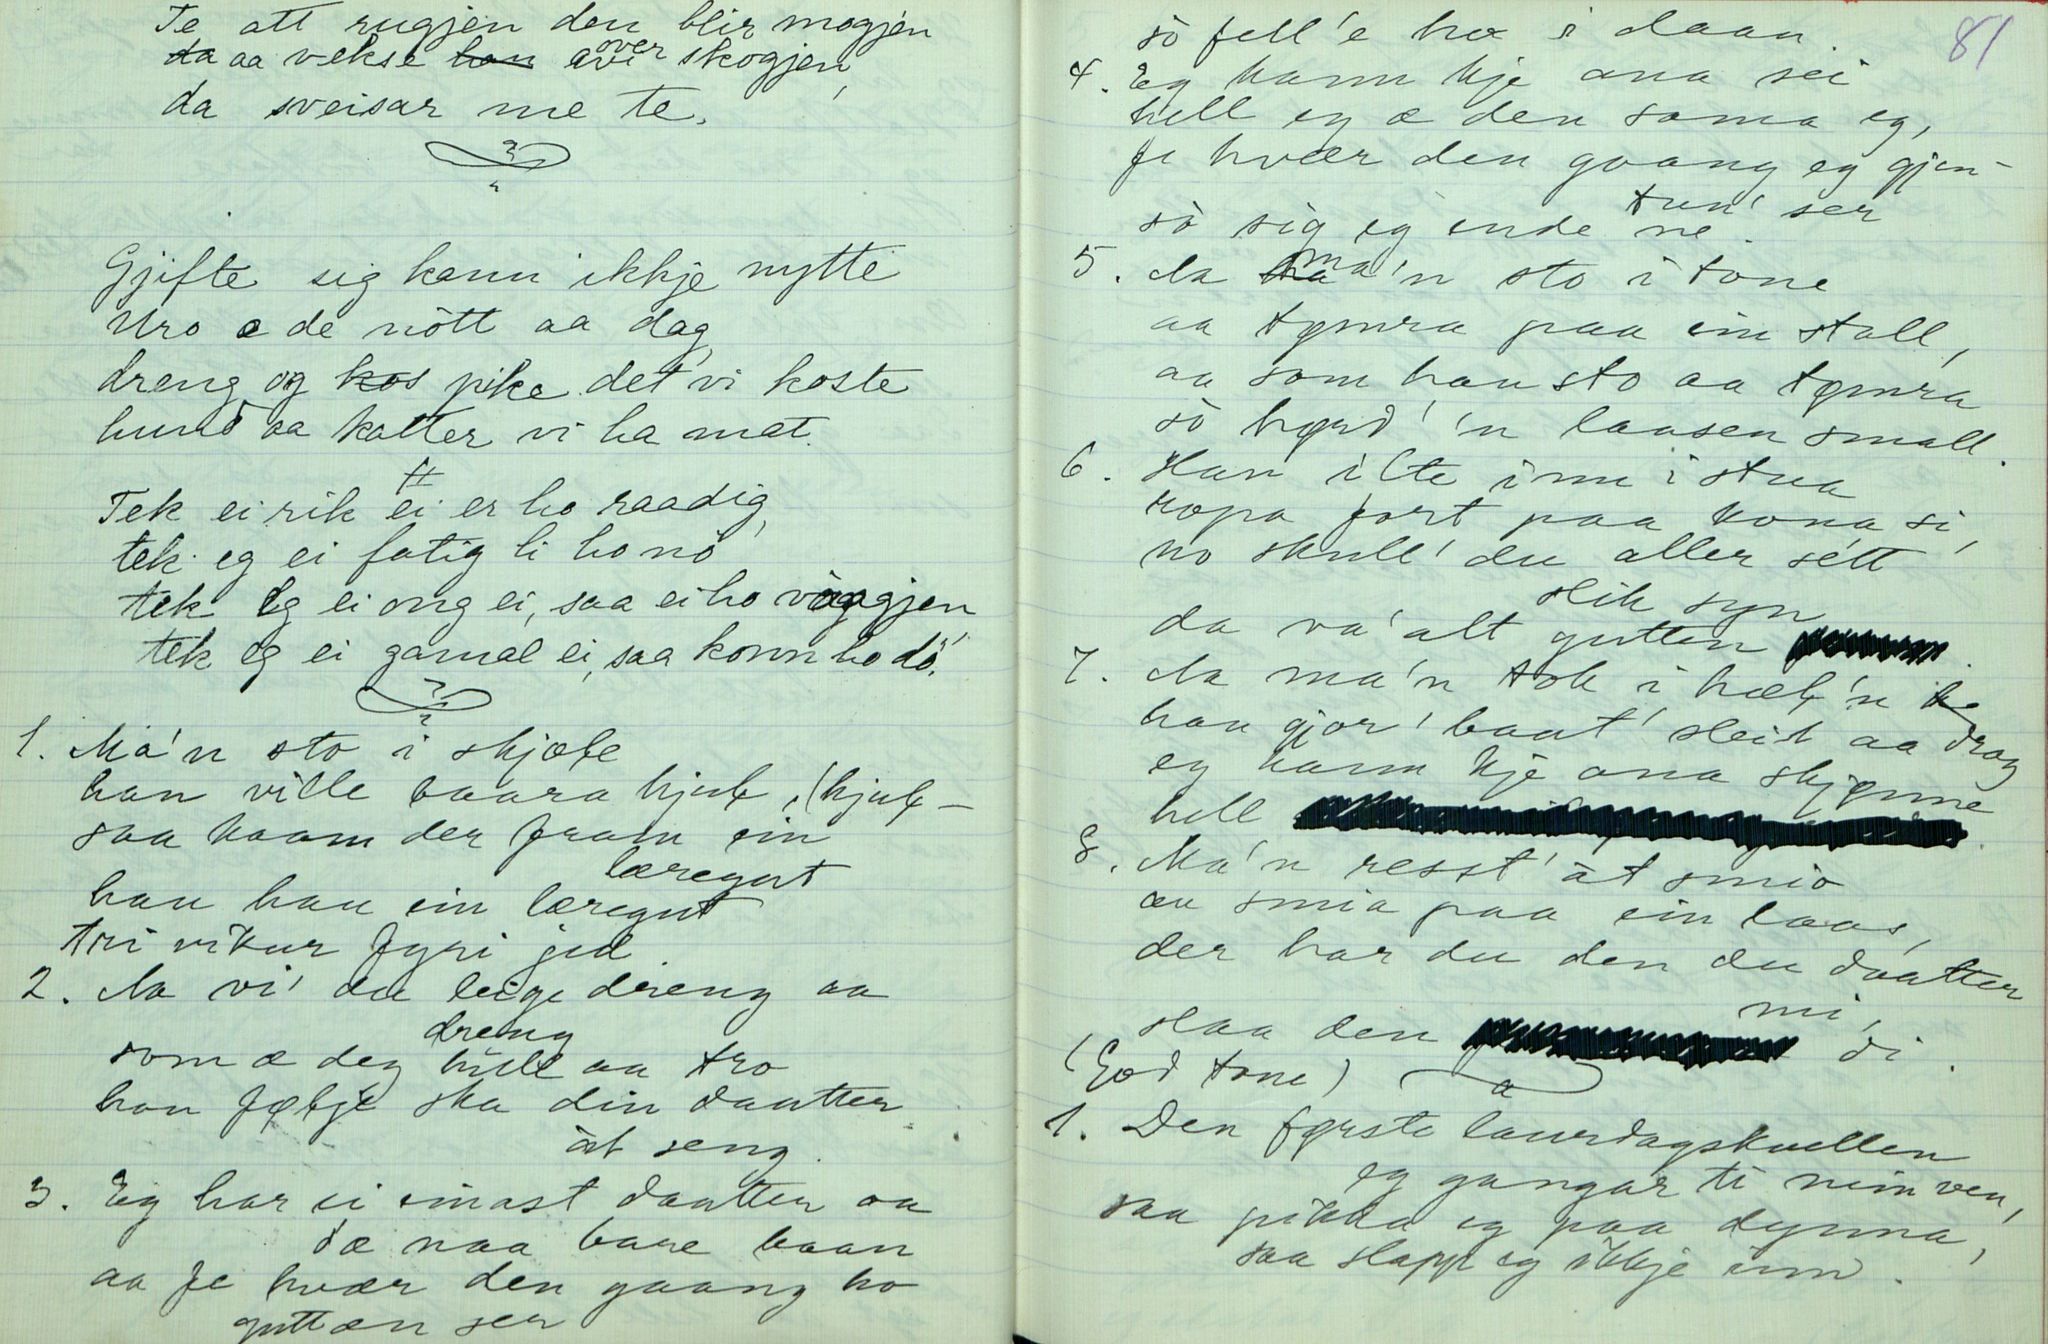 Te att rugjen den blir mogjen
da aa vekse han aver over skogjen,
da sveisar me te.
Gjifte sig kann ikkje nytte
Uro e de nòtt aa dag,
dreng og kos pike det vi koste
hund aa katter vi ha mat.
Tek ei rik ei er ho raadig,
tek eg ei fatig li ho nò
tek eg ei ong ei, saa ei ho vaagjen
tek eg ei gamal ei, saa konn ho dö.
1. Ma'n sto i skjæle
han ville baara hjul, (hjul-
saa kaam der fram ein
læregut
han han ein læregut
tri vikur fyri jul
2. Aa vi' du leige dreng aa
dreng
som æ deg hull aa tro
han følje ska din daatter
àt seng.
3. Eg har ei einast daatter aa
dæ naa bare baan
aa fe hvær den gaang ho
guttæn ser
81
sò fell'e ho i daan.
4. Eg kann kje ana sei
hell eg æ den soma eg,
fe hvær den goang eg gjen-
tun' ser
sò sig eg ende ne.
5. Aa ha ma'n sto i tone
aa tømra paa ein stall,
aa som han sto aa tømra
sò hørd' 'n laasen small.
6. Han ilte inn i stua
ropa fort paa kona si,
no skull' du aller sétt
slik syn
da va' alt gutten
7. Aa ma'n tok i hæl'n
han gjor' baat' sleit aa drog
eg kann kje ana skjønne
hell
8. Ma'n resst' àt smio
au smia paa ein laas,
der har du den du daatter
mi,
slaa den di.
(God tone)
1. Den første laurdagskvellen
eg gangar ti min ven,
saa pikka eg paa dynna,
saa slapp eg ikkje inn.